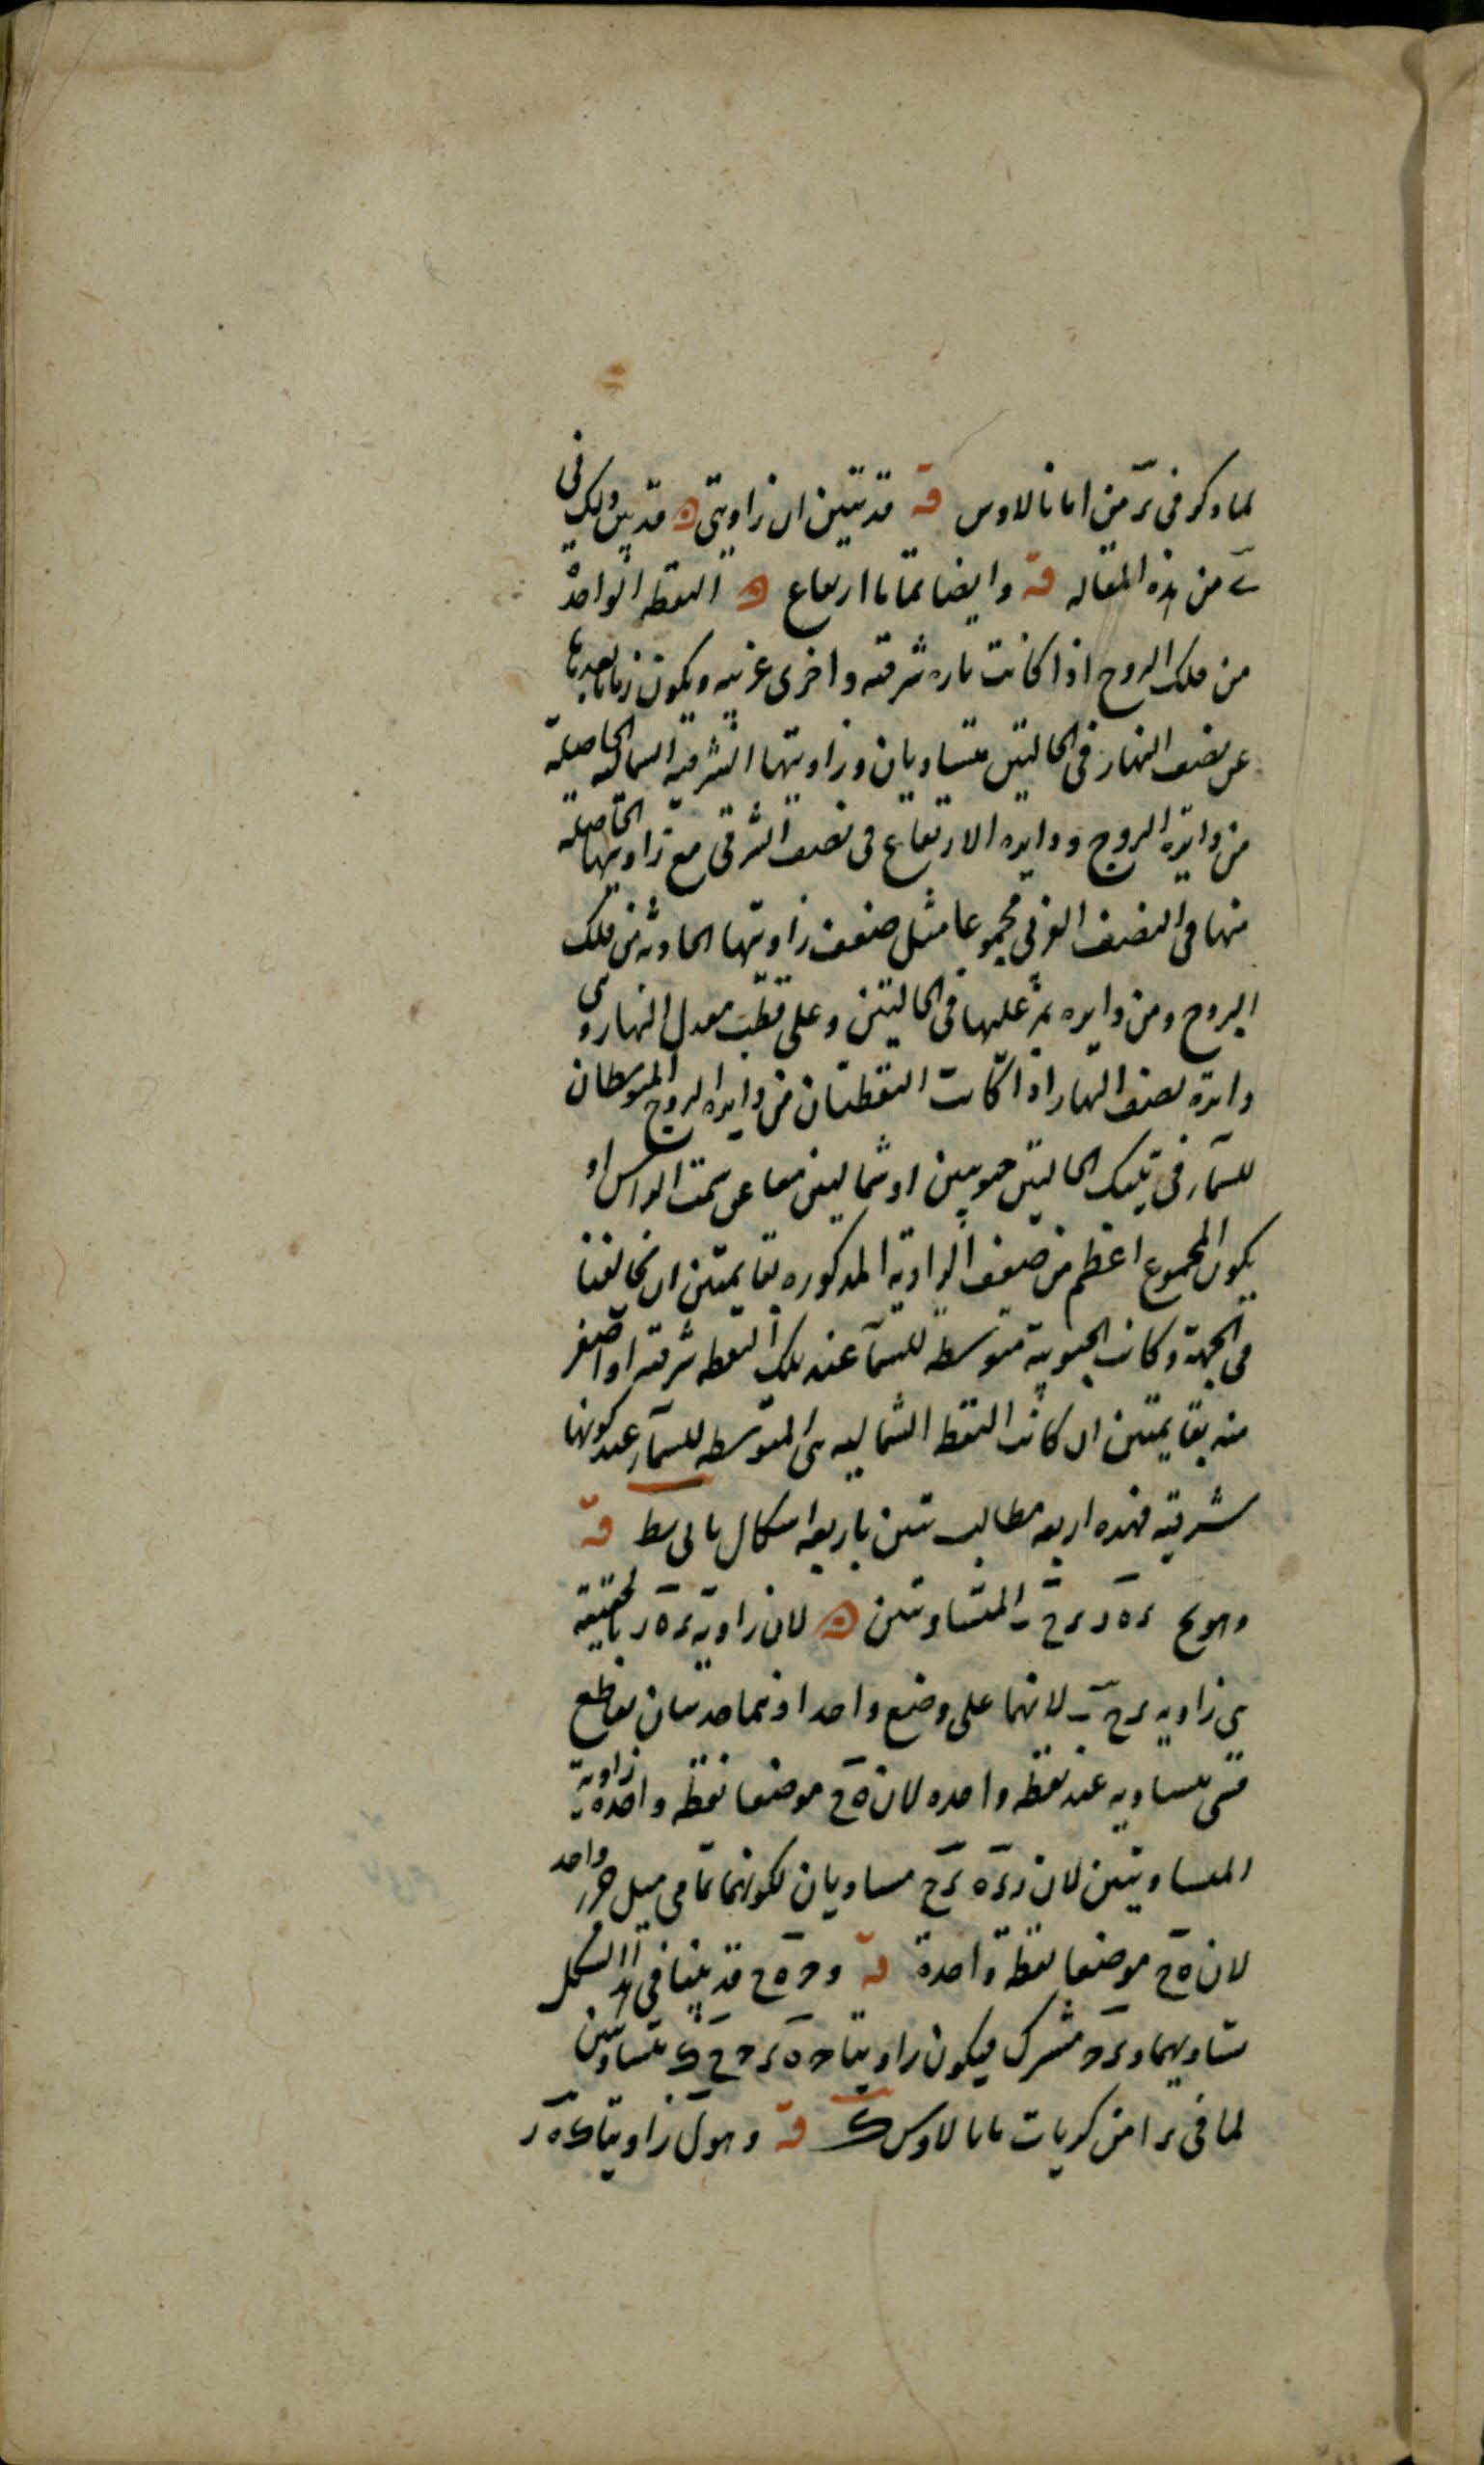 لما ذكر فى ىر من ا مانالاوس قه قد تبين ان زاويتى ه قد بين ذلك فى
ى من هذه المقاله قه وايضا تماما ارتفاع ه النقطه الواحدة
من فلك البروج اذا كانت تارة شرقيه واخرى غربيه ويكون زمانا بعديها
عن نصف النهار فى الحالتين متساويان وزاويتها الشرقية الشماليه الحاصلة
من دايرة البروج ودايرة الارتفاع فى نصف الشرقى مع زاويتها الحاصله
منها فى النصف الغربى مجموعا مثل ضعف زاويتها الحادثه من فلك
البروج ومن دايره تمر عليها فى الحالتين وعلى قطبى معدل النهار وهى
دايرة نصف النهار اذا كانت النقطتان من دايرة البروج المتوسطان
للسماء فى تينك الحالتين جنوبيين او شماليين معا عن سمت الراس او
يكون المجموع اعظم من ضعف الزاوية المذكوره بقايمتين ان تخالفتا
فى الجهة وكانت الجنوبية متوسطة للسماء عند تلك النقطه شرقيه او اصغر
منه بقايمتين ان كانت النقطه الشماليه هى المتوسطه للسماء عند كونها
شرقيه فهذه اربعه مطالب تتبين باربعه اشكال يا الى سط قه
وهو مح ىه ر ىح ب المتساويتين ه لان زاوية ىه ر بالحقيقة
هى زاويه ىح ب لانهما على وضع واحد اذ هما حدثتان بتقاطع
قسى متساويه عند نقطه واحده لان ه ح موضعا نقطة واحدة زاوية
المتساويتين لان ر ىه ىح مساويان لكونهما تمامى ميل جزء واحد
لان ه ح موضعا نقطة واحدة قه و ح ه ح قد بينا فى هذا الشكل
تساويهما وىح مشترك فيكون زاويتا ح ه ى ح ح ى متساويتين
لما فى ىر ا من كريات مانالاوس ك قه وهو ل زاويتا ك ه ر